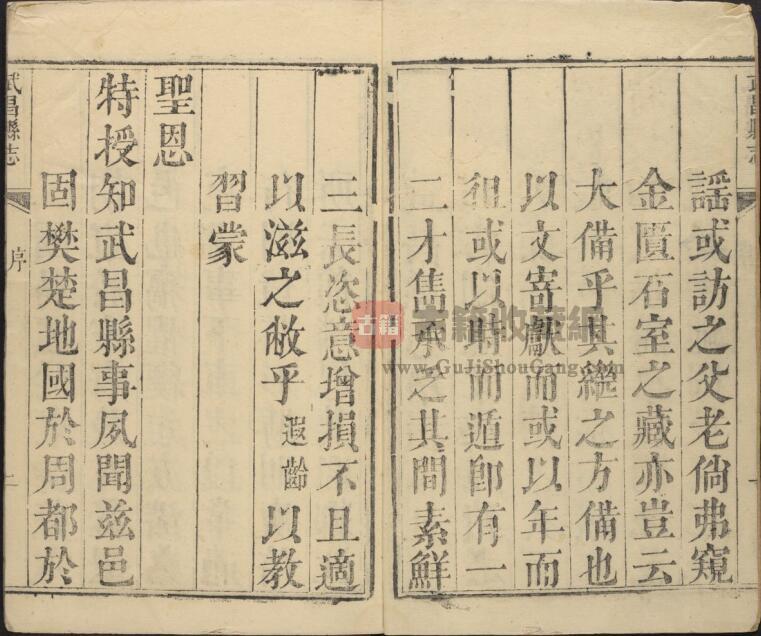 武昌縣志
謡或訪之父老倘弗窺
金匱石室之藏亦豈云
大備乎其繼之方備也
以文寄獻而或以年而
徂或以時而遁卽有一
二才雋承之其間素鮮
三長恣意增損不且適
以滋之敝乎遐齡以教
習蒙
聖恩
特授知武昌縣事夙聞兹邑
固樊楚地國於周都於
武昌縣志 序
古籍
古籍收藏網
www.GuJiShouCang.com